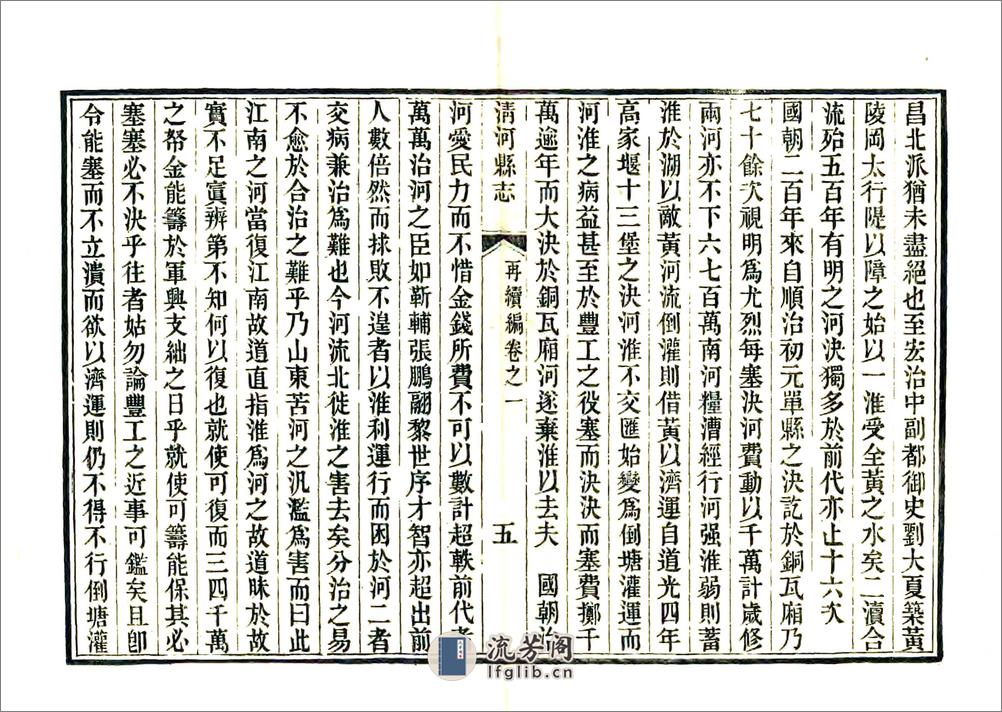 昌北派猶未盡絕也至宏治中副都御史劉大夏築黃
陵岡太行隄以障之始以一淮受全黃之水矣二瀆合
流殆五百年有明之河決獨多於前代亦止十六次
國朝二百年來自順治初元單縣之決訖於銅瓦廂乃
七十餘次視明爲尤烈每塞決河費動以千萬計歲修
兩河亦不下六七百萬南河糧漕經行河强淮弱則蓄
淮於湖以敵黃河流倒灌則借黃以濟運自道光四年
高家堰十三堡之決河淮不交匯始變爲倒塘灌運而
河淮之病益甚至於豐工之役塞而決決而塞費擲千
萬逾年而大決於銅瓦廂河遂棄淮以去夫　國朝治
清河縣志　再續編卷之一　五
河愛民力而不惜金錢所費不可以數計超軼前代者
萬萬治河之臣如靳輔張鵬翮黎世序才智亦超出前
人數倍然而捄敗不遑者以淮利運行而困於河二者
交病兼治爲難也今河流北徙淮之害去矣分治之易
不愈於合治之難乎乃山東苦河之汎濫爲害而曰此
江南之河當復江南故道直指淮爲河之故道昧於故
實不足寘辨第不知何以復也就使可復而三四千萬
之帑金能籌於軍興支絀之日乎就使可籌能保其必
塞塞必不決乎往者姑勿論豐工之近事可鑑矣且卽
令能塞而不立潰而欲以濟運則仍不得不行倒塘灌
流芳阁
lfglib.cn